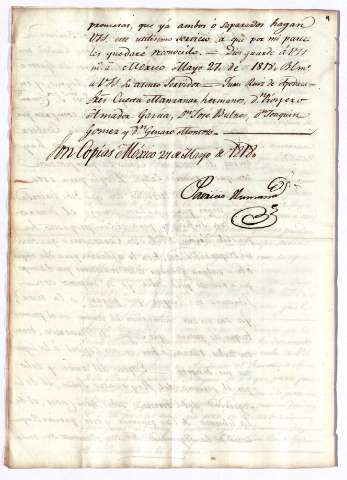 promesas, que ya ambos o separados hagan
VSS. este utilisimo servicio, á que por mi parte
les quedaré reconocido. = Dios guarde á VSS
ms. as. Mexico Mayo 27. de 1818. BLmo.
a VSS. su atento Servidor = Juan Ruiz de Apodaca
Sres Cuesta Manzanar hermanos, Dn. Prospero
Amador Garcia, Dn. Jose Bulnes, Dn. Joaquin
Gomez y Dn. Genaro
Son Copias Mexico 27 de Mayo de 1818.
Patricio Humana